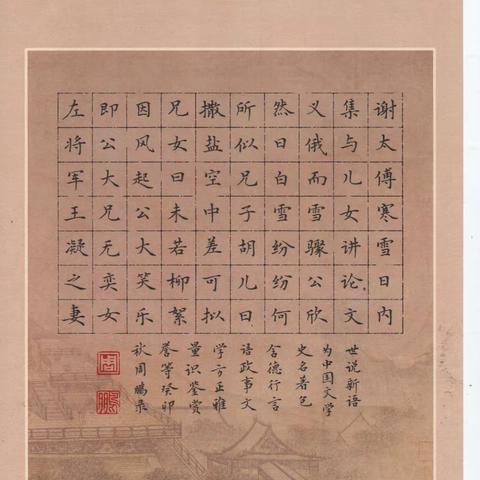 谢太傅寒雪日内
集与儿女讲论文
义俄而雪骤公欣
然曰白雪纷纷何
所似兄子胡儿曰
撒盐空中差可拟
兄女曰未若柳絮
因风起公大笑乐
即公大兄无奕女
左将军王凝之妻
世说新语
为中国文学
史名著包
含德行言
语政事文
学方正雅
量识鉴赏
誉等癸卯
秋周鹏录
周
鹏